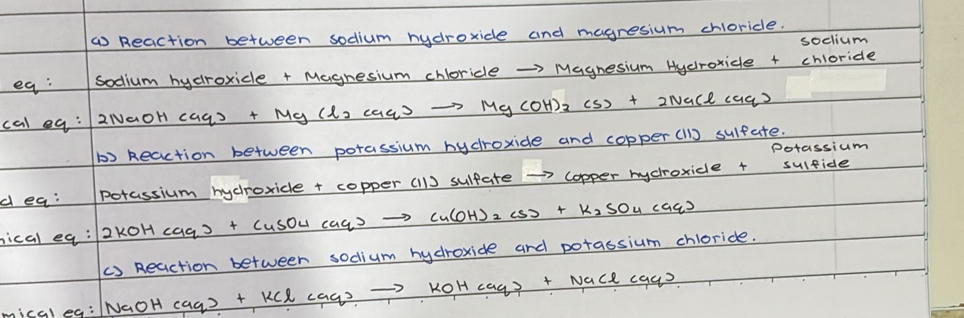 a) Reaction between sodium hydroxide and magnesium chloride.
sodium
eq: Sodium hydroxide + Magnesium chloride → Magnesium Hydroxide + chloride
cal eq: 2NaOH (aq) + MgCl2 (aq) → Mg(OH)2 (s) + 2NaCl (aq)
b) Reaction between potassium hydroxide and copper(II) sulfate.
Potassium
d eq: Potassium hydroxide + copper (II) sulfate → copper hydroxide + sulfide
nical eq: 2KOH (aq) + CuSO4 (aq) → Cu(OH)2 (s) + K2SO4 (aq)
c) Reaction between sodium hydroxide and potassium chloride.
mical eq: NaOH (aq) + KCl (aq) → KOH (aq) + NaCl (aq)